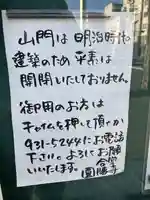 山門は明治時代
建築のため平素は
開閉いたしておりません。
御用のお方は
チャイムを押して頂くか
931-5244にお電話
下さい。よろしくお願
いいたします。合掌
圓勝寺